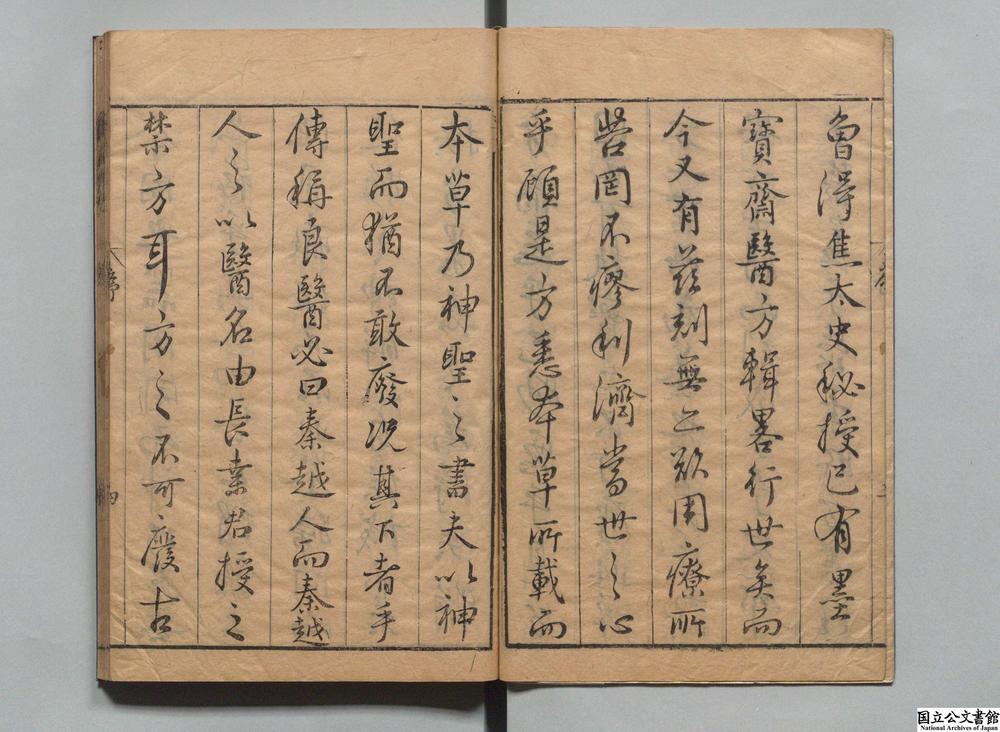 曾得焦太史秘授已有墨
寶齋醫方輯畧行世矣而
今又有茲刻無亡欲用療所
苦罔不瘳利濟當世之心
乎顧是方悉本草所載而
本草乃神聖之書夫以神
聖而猶不敢廢况其下者乎
傳稱良醫必曰秦越人而秦越
人之以醫名由長桒君授之
禁方耳方之不可廢古
序
四
国立公文書館
National Archives of Japan